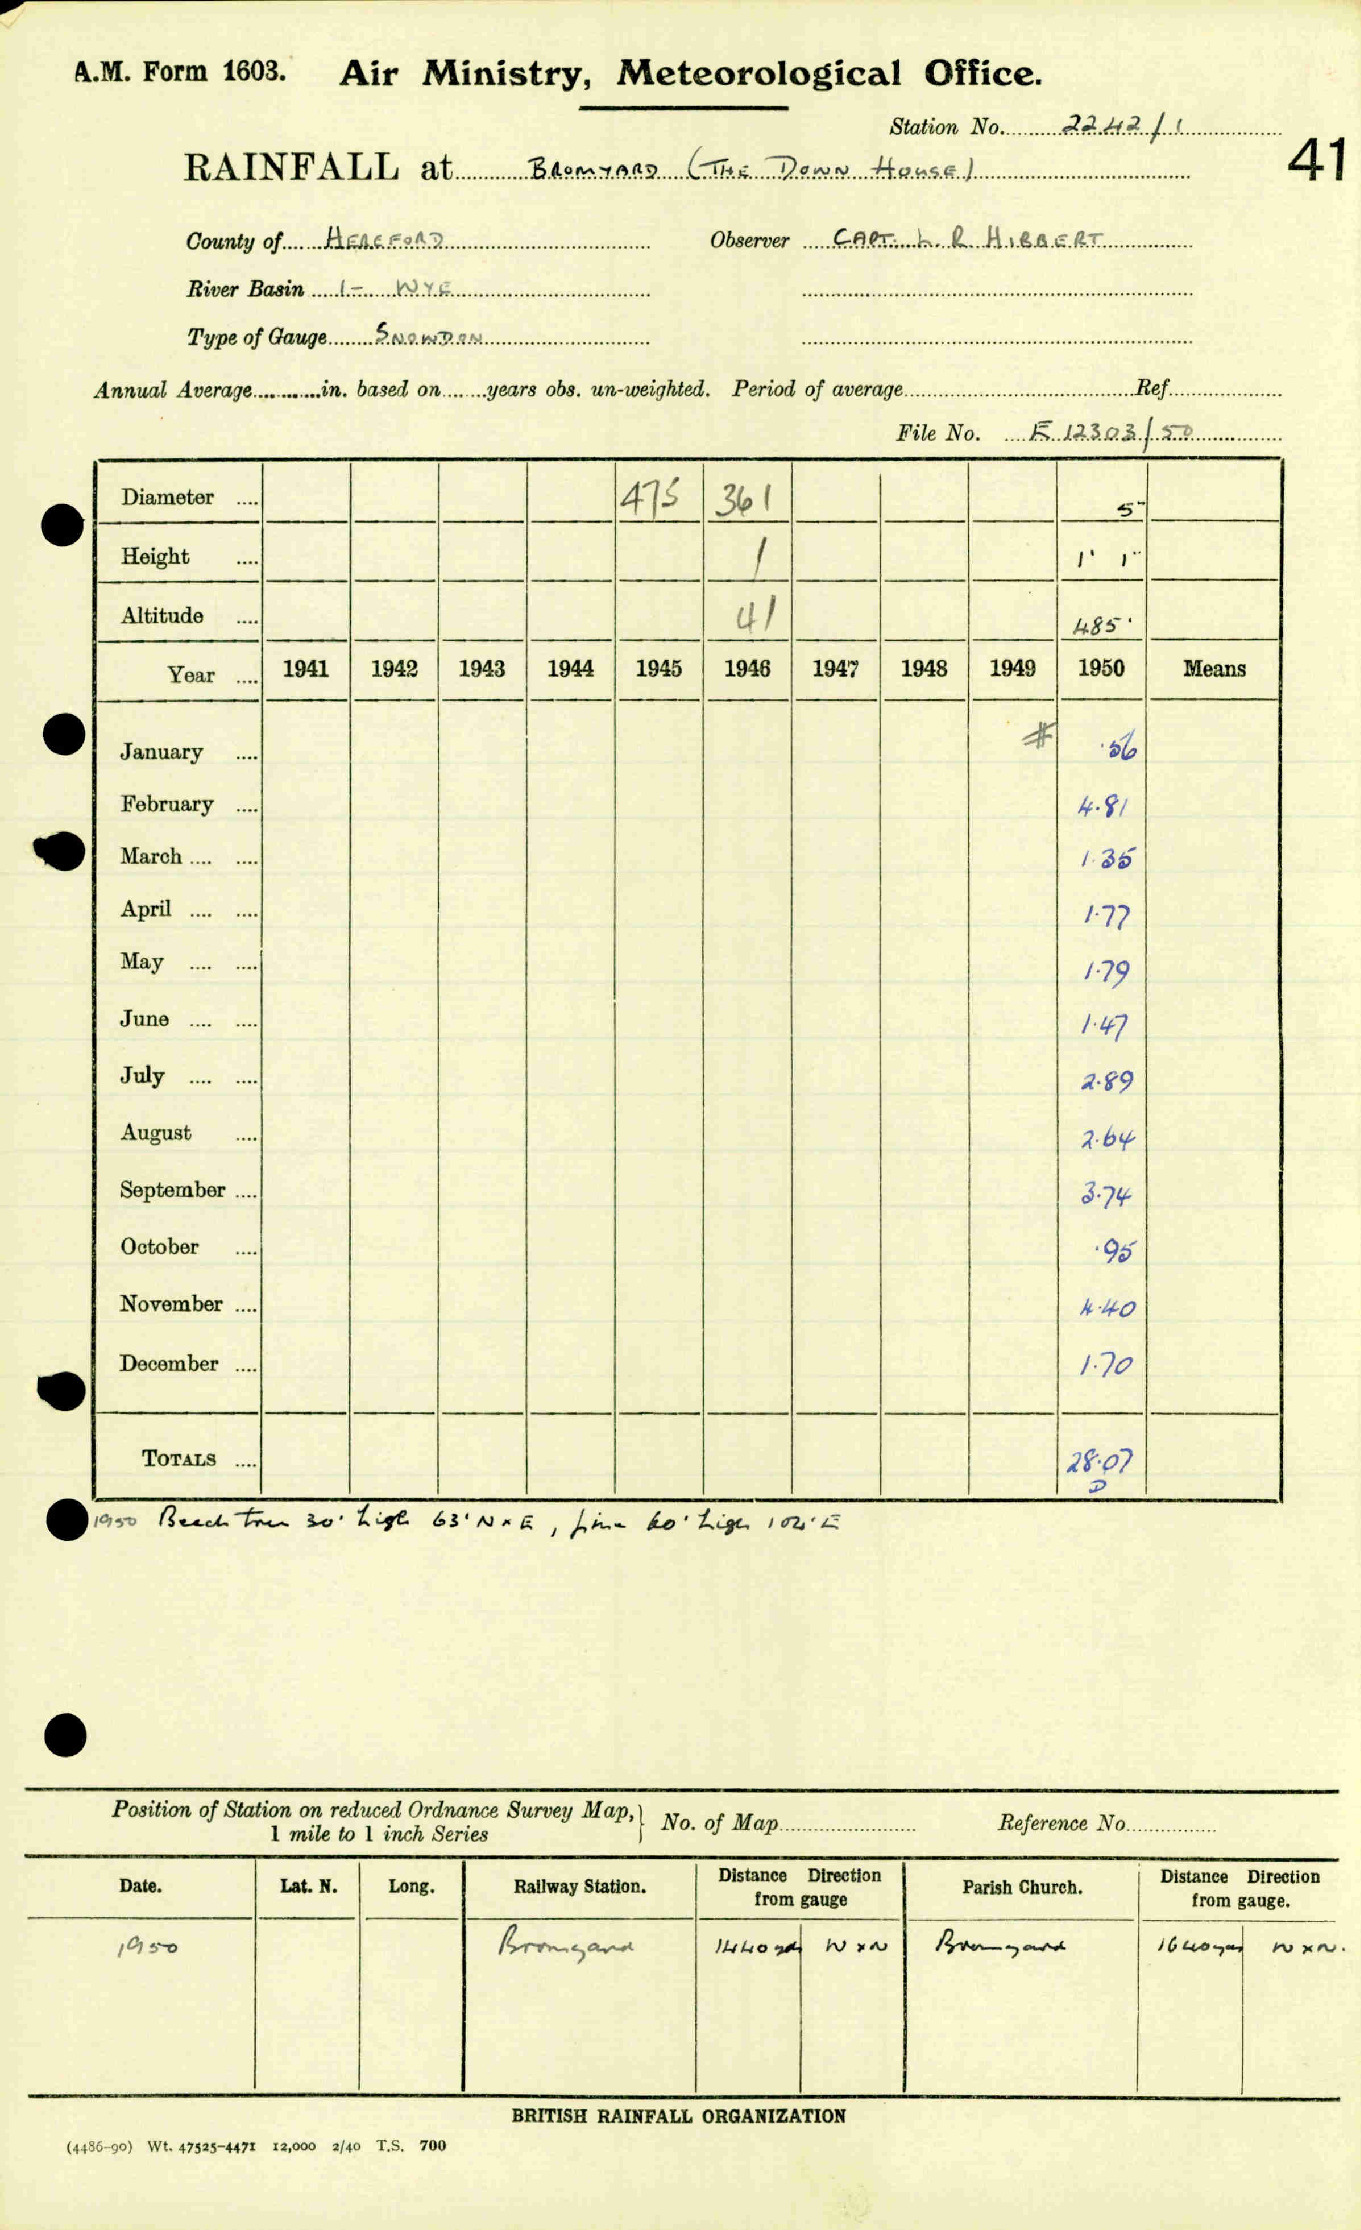 A.M. Form 1603. Air Ministry, Meteorological Office.
Station No. 2242/1
RAINFALL at BROMYARD (THE DOWN HOUSE) 41
County of HEREFORD Observer CAPT. L. R. HIBBERT
River Basin 1- WYE
Type of Gauge SNOWDON
Annual Average in. based on years obs. un-weighted. Period of average Ref.
File No. E 12303/50
Diameter 475 361 5"
Height 1 1' 1"
Altitude 41 485'
Year 1941 1942 1943 1944 1945 1946 1947 1948 1949 1950 Means
January # ·56
February 4·81
March 1·35
April 1·77
May 1·79
June 1·47
July 2·89
August 2·64
September 3·74
October ·95
November 4·40
December 1·70
TOTALS 28·07
D
1950 Beech tree 30' high 63' N x E, 60' high 102' E
Position of Station on reduced Ordnance Survey Map,
1 mile to 1 inch Series } No. of Map Reference No.
Date. Lat. N. Long. Railway Station. Distance Direction from gauge Parish Church. Distance Direction from gauge.
1950 Bromyard 1440 yds W x N Bromyard 1640 yds W x N.
BRITISH RAINFALL ORGANIZATION
(4486-90) Wt. 47525-4471 12,000 2/40 T.S. 700